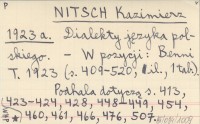 P
NITSCH Kazimierz
P
1923 a. Dialekty języka pol-
skiego. - W pozycji: Benni
T. 1923 (s. 409-520, il., 1 tab.)
Podhala dotyczą s. 413,
(423-424, 428, 448-449, 454,
* 460, 461, 466, 476, 507.